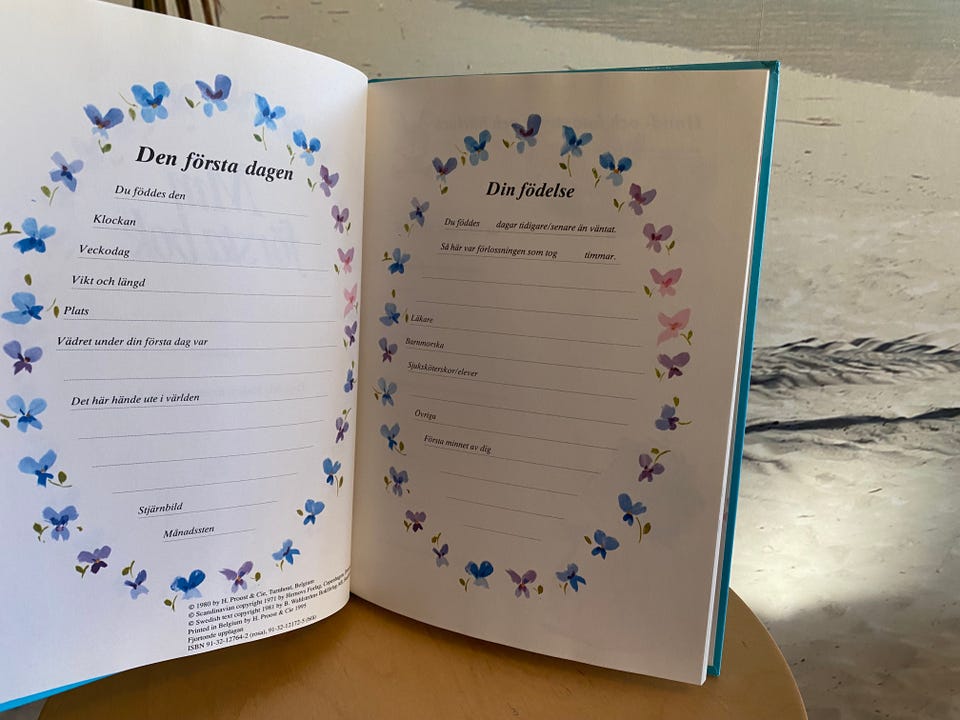 Den första dagen
Du föddes den
Klockan
Veckodag
Vikt och längd
Plats
Vädret under din första dag var
Det här hände ute i världen
Stjärnbild
Månadssten
© 1980 by H. Proost & Cie, Turnhout, Belgium
© Scandinavian copyright 1971 by Hernovs Forlag, Copenhagen
© Swedish text copyright 1981 by B. Wahlströms Bokförlag AB,
Printed in Belgium by H. Proost & Cie 1995
Fjortonde upplagan
ISBN 91-32-12764-2 (rosa), 91-32-12172-5 (blå)
Din födelse
Du föddes dagar tidigare/senare än väntat.
Så här var förlossningen som tog timmar.
Läkare
Barnmorska
Sjuksköterskor/elever
Övriga
Första minnet av dig